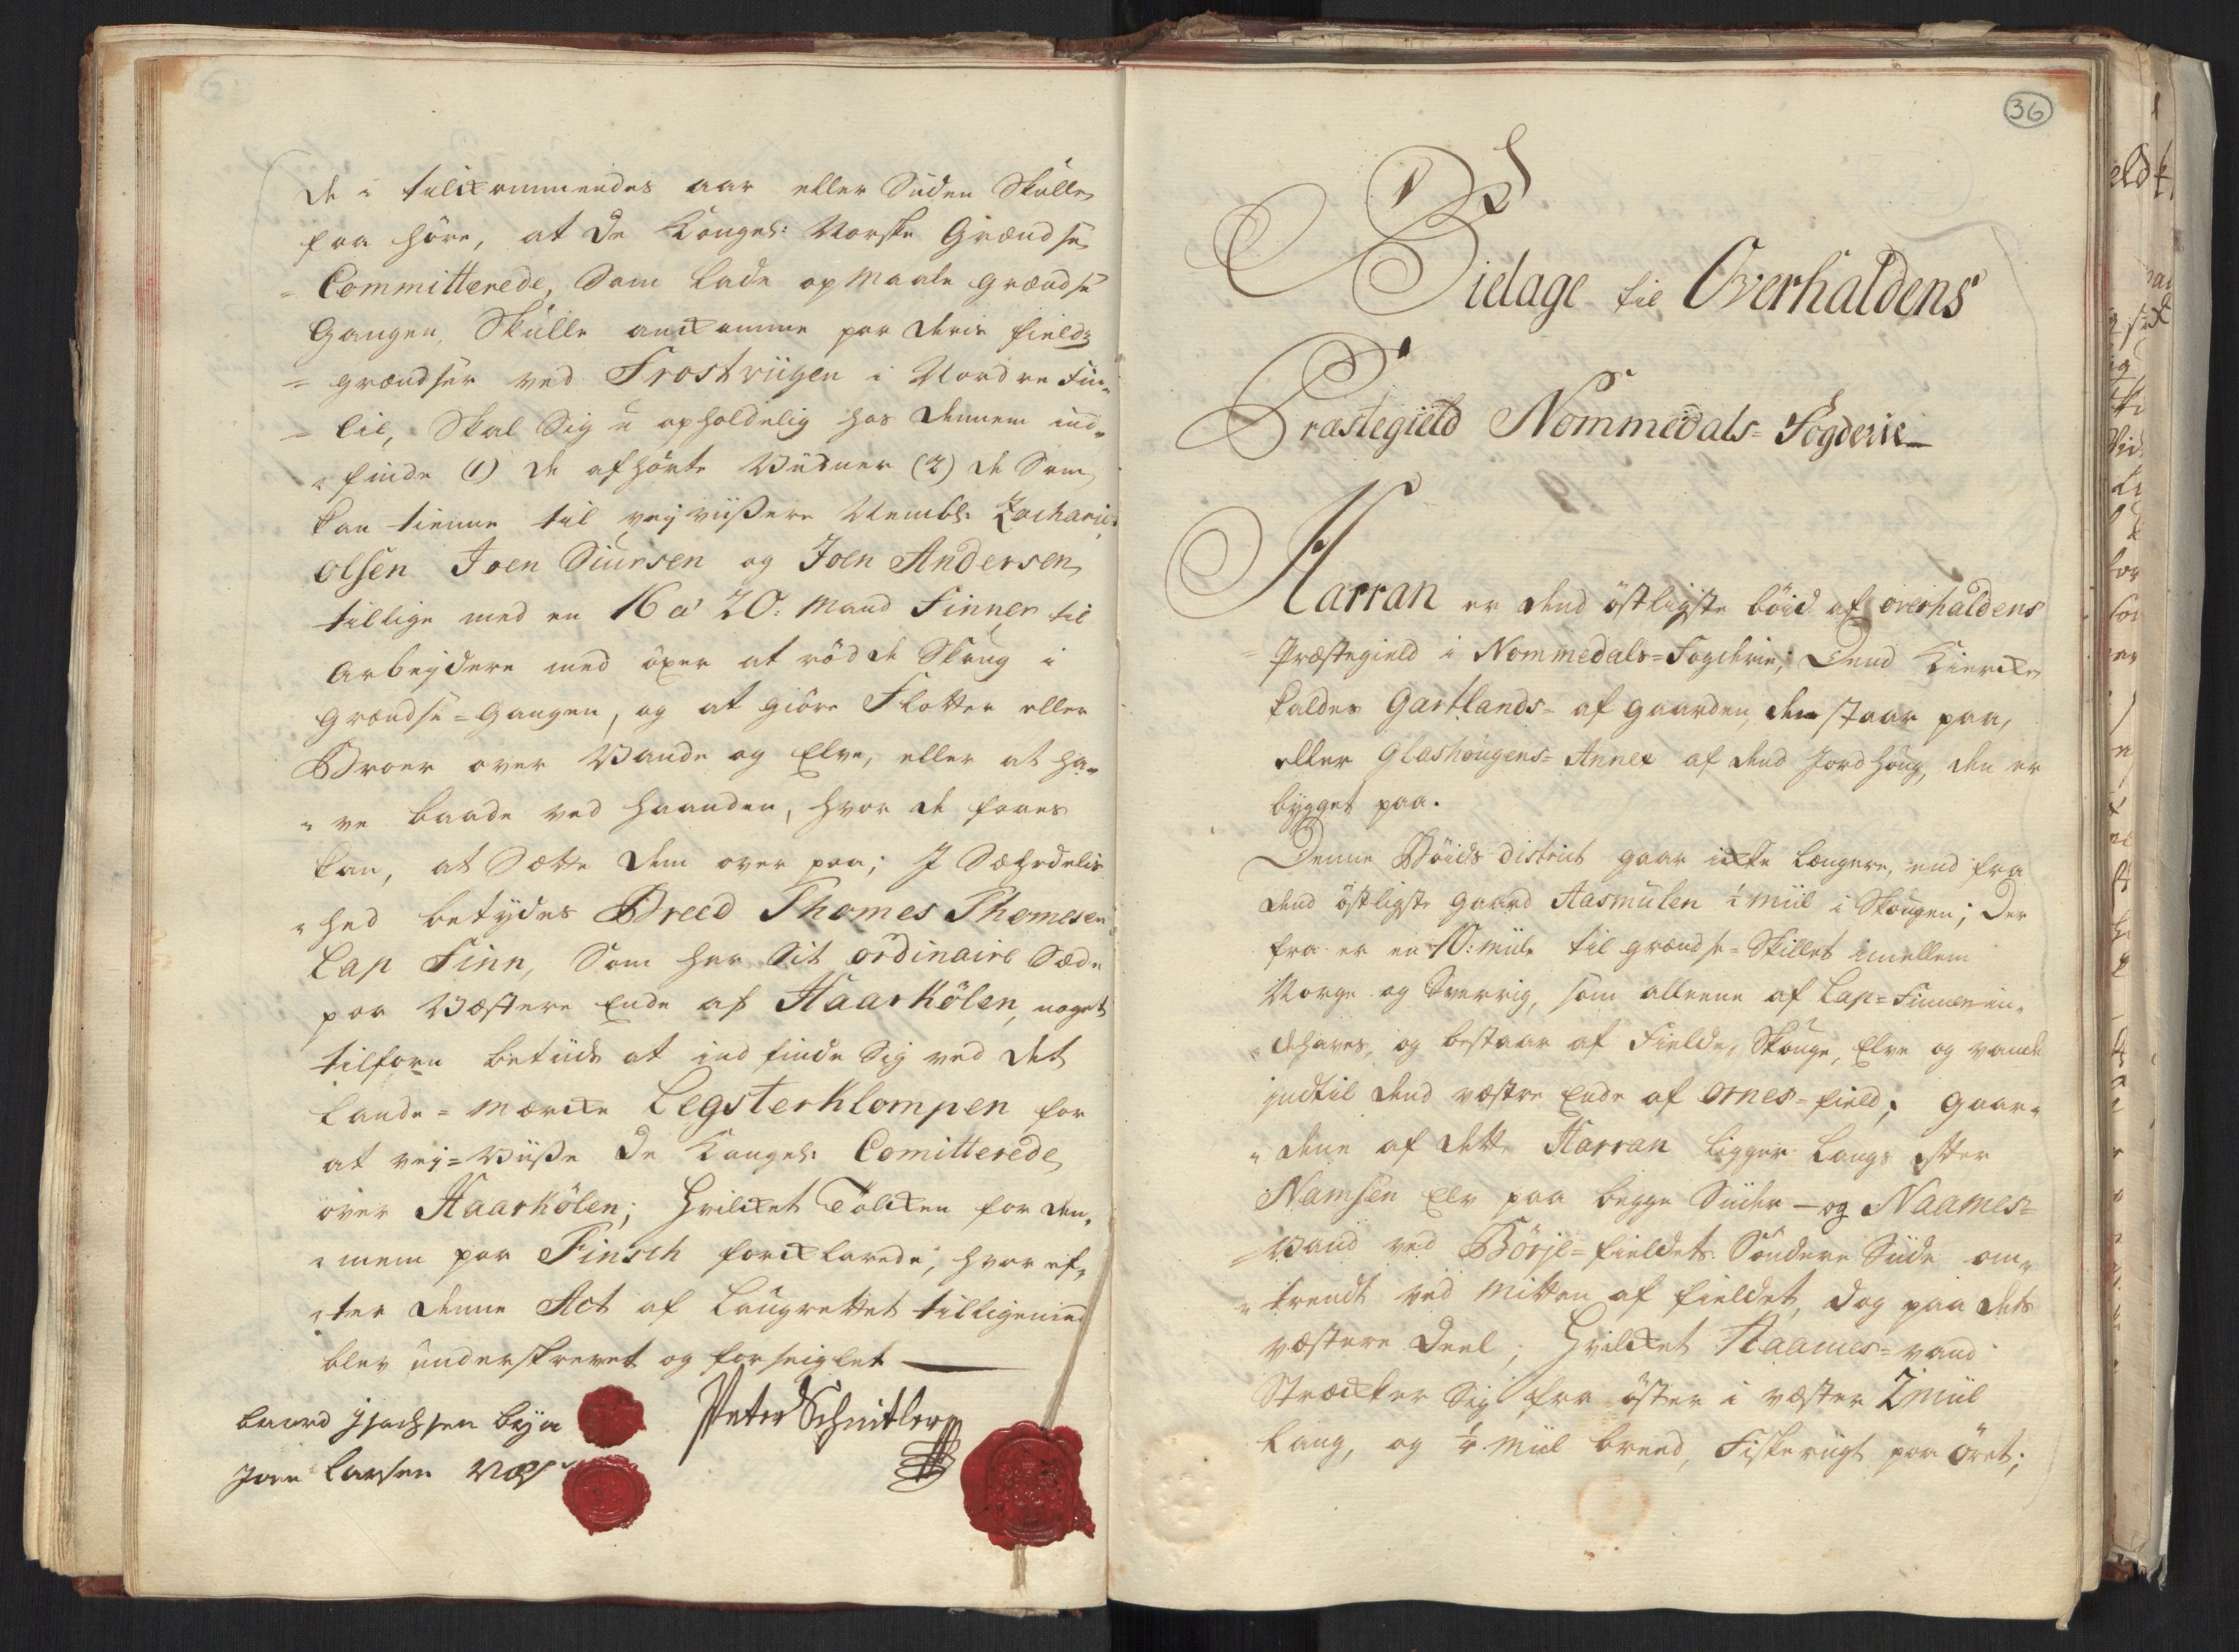 de i tilkommendes aar eller Siden Skulle
faa høre, at de Kongel: Norske Grændse
= Committerede, Som lade op Maale grændse
Gangen, Skulle ankomme paa deris field=
= grændser ved Frostviigen i Nordre Fin„
= lie, Skal Sig u opholdelig hos dennem ind„
„ finde (1) de afhørte Viidner (2) de Som
kan tienne til veyviißere Nembl: Zacharias
olsen Joen Siursen og Joen Andersen
tillige med en 16 a' 20: Mand Finner til
Arbeydere med øxer at rødde Skoug i
Grændse=Gangen, og at giøre Flotter eller
Broer over Vande og Elve, eller at ha„
„ ve baade ved Haanden, hvor de faaes
kan, at Sætte dem over paa; J Sæhrdelis
„ hed betydes Breed Thomes Thomesen
Lap Finn, Som har Sit ordinaire Sæde
paa Væstere Ende af Haarkölen, noget
tilforn betiids at ind finde Sig ved det
Lande=Mærcke Legsterklompen for
at vey=Viiße de Kongel: Comitterede
over Haarkölen; Hvilcket Tolcken for den„
„ nem paa Finsch forcklarede, hvor ef„
„ ter denne Act af Laugrettet tilligemed
blev underskrevet og forseiglet —
baard Jsachsen bya
Peter Schnitler
Joen Larsen
36
Tielage til Overhaldens
Præstegield Nommedals=Fogderie
Harran er dend östligste böid af overhaldens
= Præstegield i Nommedals=Fogderie, Dend Kiercke
kaldes Gartlands= af gaarden, den staar paa,
eller Glashougens=Annex af dend Jordhöug, den er
bygget paa.
Denne Böids district gaar icke længere, end fra
dend östligste gaard Aasmulen ½ Miil i Skougen; Der
fra er en 10: Miile til grændse=Skillet imellem
Norge og Sverrig, som alleene af Lap=Finner in„
„ dehaves, og bestaar af Fielde, Skouge, Elve og vande
indtil dend væstre Ende af Ornes=field; Gaar„
„ dene af dette Harran ligger Langs etter
Namsen Elv paa begge Siider — og Naames=
= Vand ved Börje=fieldets Söndere Siide om„
„ trendt ved Mitten af fieldet, dog paa dets
væstere Deel; Hvilcket Naames=vand
Strækker Sig fra öster i væster 2 Miil
lang, og ¼ Miil breed, Fiskerigt paa Öret;